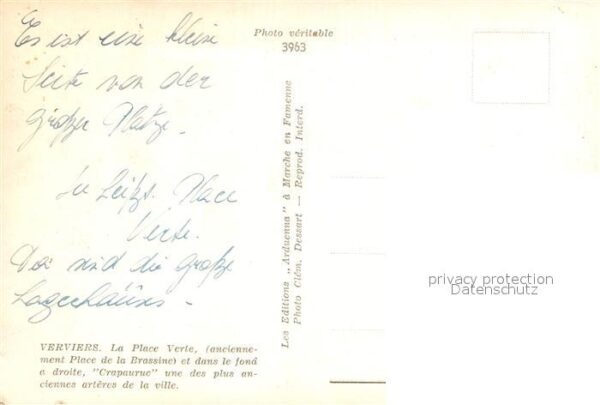 Photo véritable
3963
Es ist eine kleine
Seite von der
großen Platze.
Place
Verte.
sind die große
Lagerhäuser -
Les Editions „Arduenna" à Marche en Famenne
Photo Clém. Dessart — Reprod. Interd.
privacy protection
Datenschutz
VERVIERS. La Place Verte, (ancienne-
ment Place de la Brassine) et dans le fond
a droite, "Crapaurue" une des plus an-
ciennes artères de la ville.